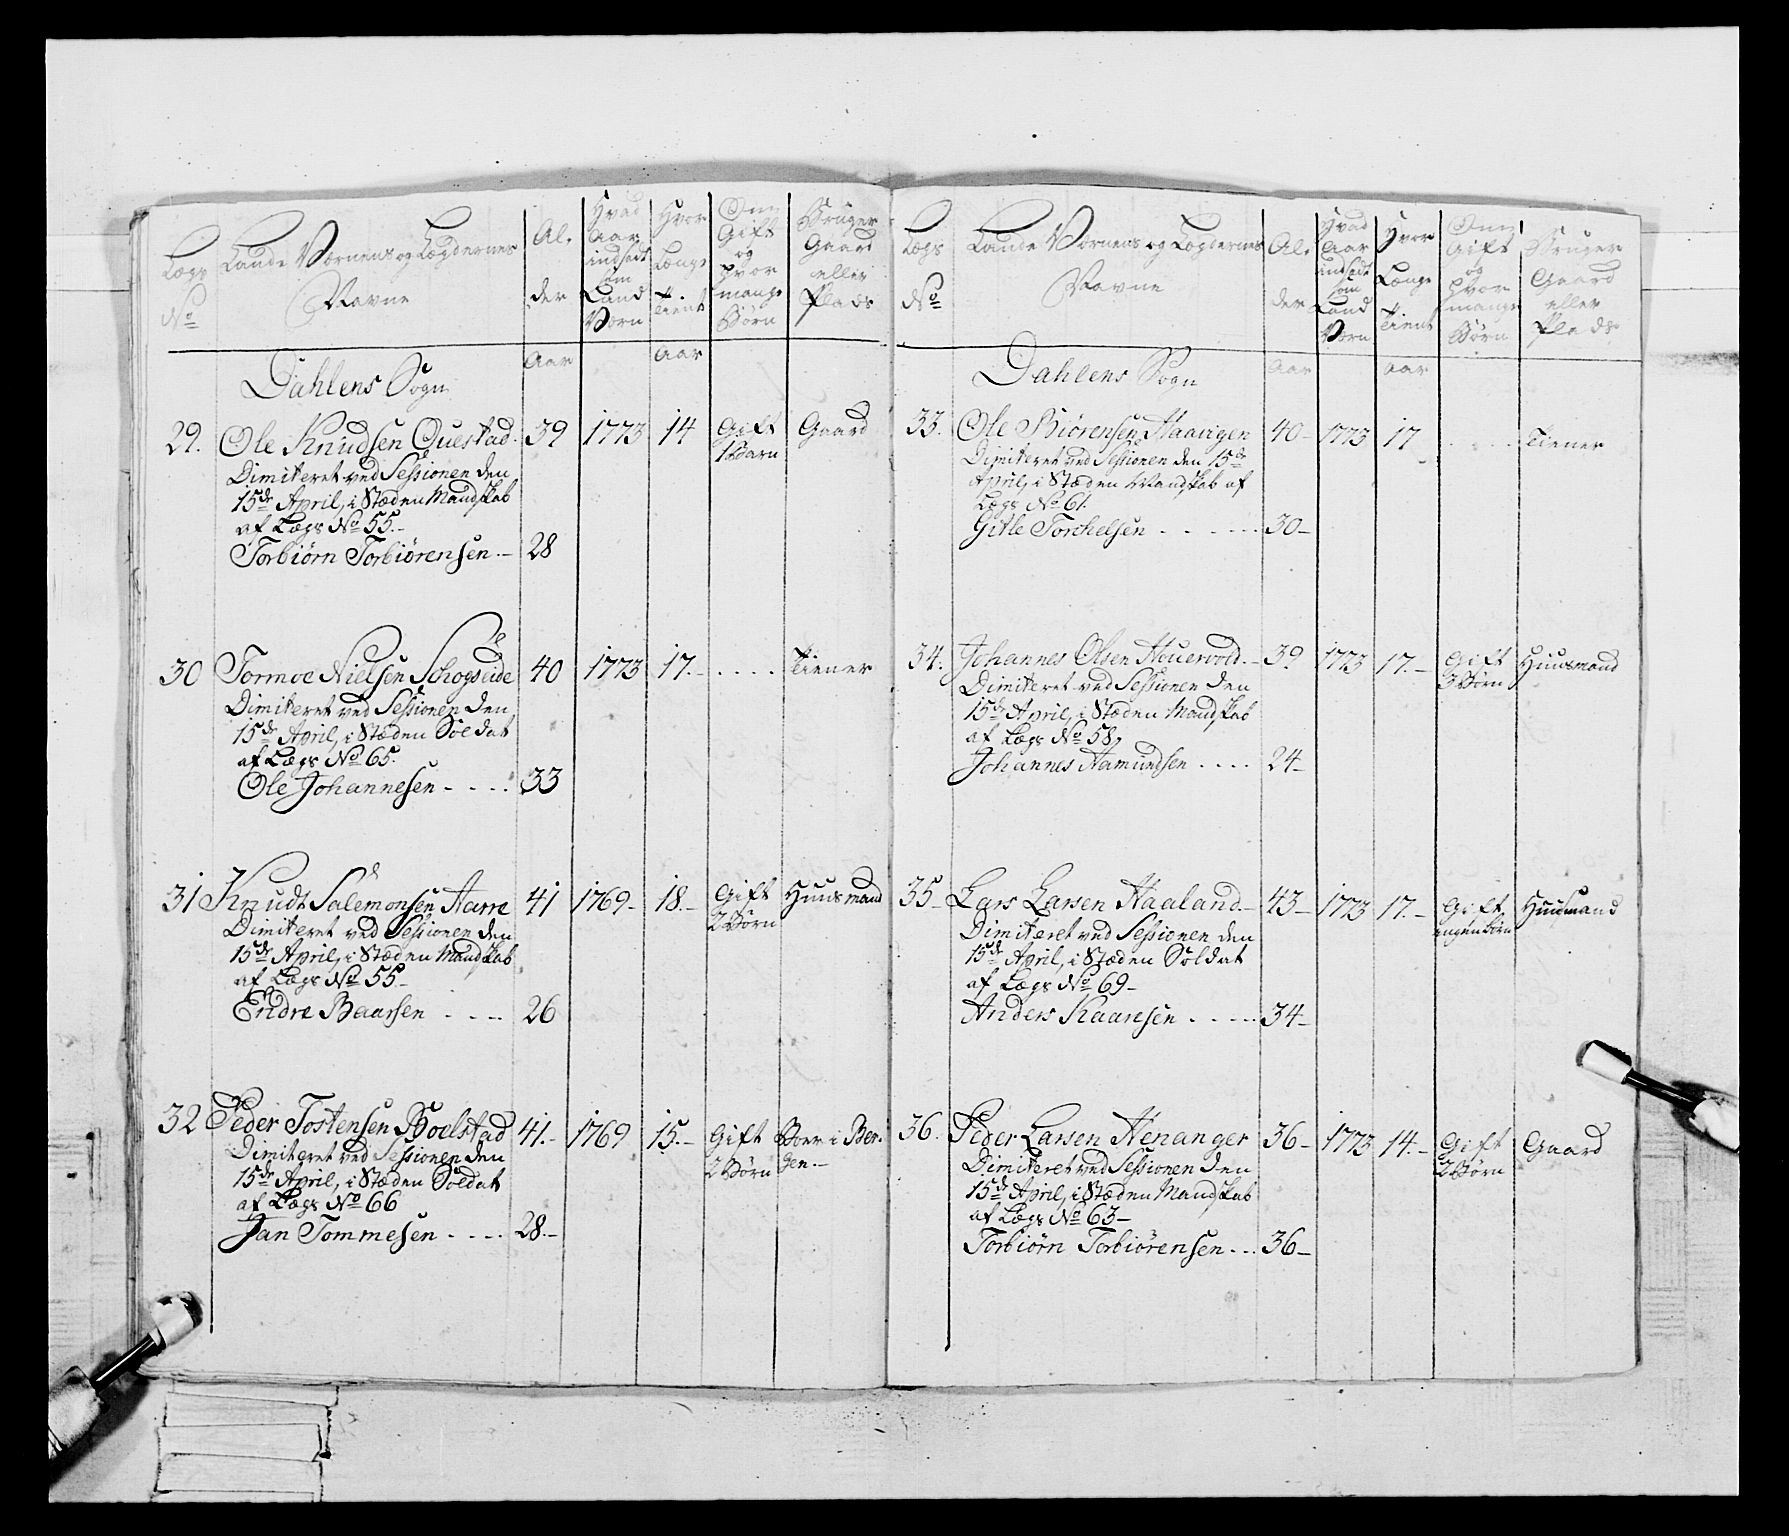 Lægs No
Lande Værnens og Lægdernes Navne
Al. der
Hvad Aar indsadt som Land Værn
Hvor Længe Tient
Om Gift og hvor mange Børn
Bruger Gaard eller Plads
Aar
Aar
Dahlens Sogn
29. Ole Knudsen Questad. 39 1773 14 Gift Gaard
1 Barn
Dimiteret ved Sessionen den
15de April, i Stæden Mandskab
af Lægs No 55.
Torbiørn Torbiørensen. 28
30 Tormoe Nielsen Schogseide 40 1773 17. .... Tiener
Dimiteret ved Sessionen den
15de April, i Stæden Soldat
af Lægs No 65.
Ole Johannesen - - - - 33
31 Knudt Salemonsen Aarre 41 1769 18. Gift Huusmand
2 Børn
Dimiteret ved Sessionen den
15de April, i Stæden Mandskab
af Lægs No 55
Endre Baarsen - - - - 26
32 Peder Tostensen Boelstad 41. 1769 15. Gift Boer i Ber.
2 Børn gen.
Dimiteret ved Sessionen den
15de April, i Stæden Soldat
af Lægs No 66
Jan Tommesen - - - - 28.
Lægs No
Lande Værnens og Lægdernes Navne
Al. der
Hvad Aar indsadt som Land Værn
Hvor Længe Tient
Om Gift og hvor mange Børn
Bruger Gaard eller Plads
Aar
Aar
Dahlens Sogn
33. Ole Biørensen Haavigen 40 1773 17 .... Tiener
Dimiteret ved Sessionen den 15de
April, i Stæden Mandskab af
Lægs No 61.
Gitle Torchelsen - - - - 30
34. Johannes Olsen Houervold. 39 1773 17. Gift Huusmand
3 Børn
Dimiteret ved Sessionen den
15de April, i Stæden Mandskab
af Lægs No 58,
Johannes Aamundsen .... 24
35 Lars Larsen Haaland 43 1773 17. Gift Huusmand
ingen Børn
Dimiteret ved Sessionen den
15de April, i Stæden Soldat
af Lægs No 69
Anders Kaaresen - - - - 34
36. Peder Larsen Henanger 36 1773 14. Gift Gaard
2 Børn
Dimiteret ved Sessionen den
15de April, i Stæden Mandskab
af Lægs No 63
Torbiørn Torbiørensen ... 36